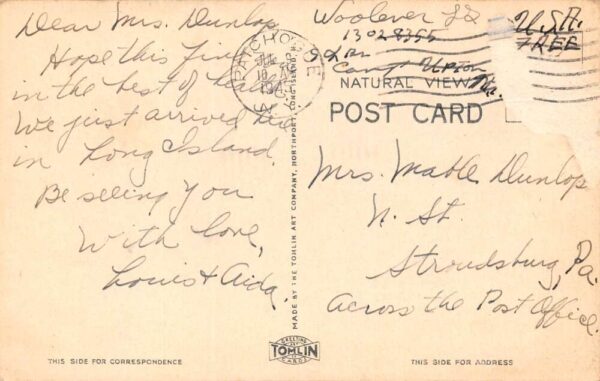 Dear Mrs. Dunlop,
Hope this finds
in the best of health
We just arrived here
in Long Island.
Be seeing you
With love,
Louis & Aida.
THIS SIDE FOR CORRESPONDENCE
PATCHOGUE
MADE BY THE TOMLIN ART COMPANY, NORTHPORT, LONG ISLAND, N.
GREETING
TOMLIN
CARDS
Woolever
13028355
Camp Upton
U.S.A.
FREE
NATURAL VIEW
POST CARD
Mrs. Mable Dunlop
N. St.
Stroudsburg, Pa.
Across the Post Office.
THIS SIDE FOR ADDRESS